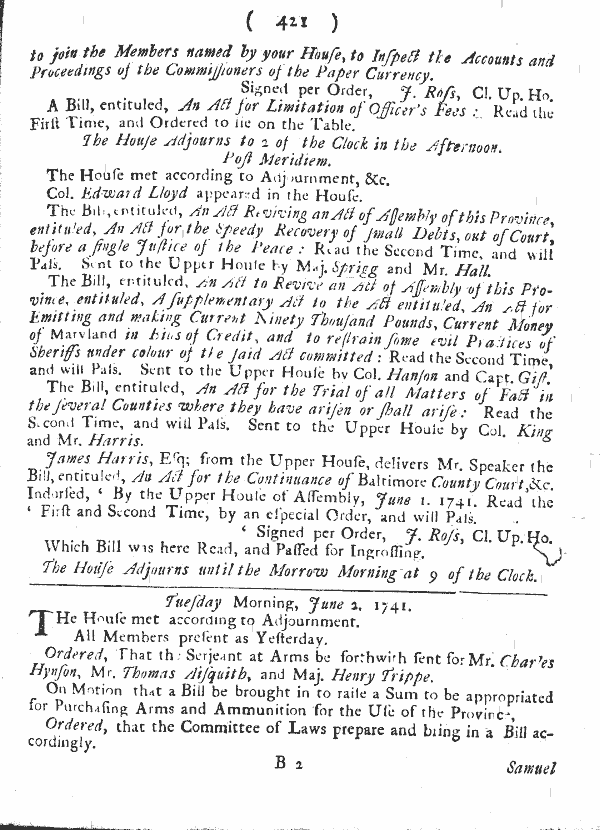 ( 421 )
to join the Members named by your Houſe, to Inſpect the Accounts and
Proceedings of the Commiſſioners of the Paper Currency.
Signed per Order, J. Roſs, Cl. Up. Ho.
A Bill, entituled, An Act for Limitation of Officer's Fees : Read the
Firſt Time, and Ordered to lie on the Table.
The Houſe Adjourns to 2 of the Clock in the Afternoon.
Poſt Meridiem.
The Houſe met according to Adjournment, &c.
Col. Edward Lloyd appeared in the Houſe.
The Bill, entituled, An Act Reviving an Act of Aſſembly of this Province,
entituled, An Act for the Speedy Recovery of ſmall Debts, out of Court,
before a ſingle Juſtice of the Peace : Read the Second Time, and will
Paſs. Sent to the Upper Houſe by Maj. Sprigg and Mr. Hall.
The Bill, entituled, An Act to Revive an Act of Aſſembly of this Pro-
vince, entituled, A ſupplementary Act to the Act entituled, An Act for
Emitting and making Current Ninety Thouſand Pounds, Current Money
of Maryland in Bills of Credit, and to reſtrain ſome evil Practices of
Sheriffs under colour of the ſaid Act committed : Read the Second Time,
and will Paſs. Sent to the Upper Houſe by Col. Hanſon and Capt. Giſt.
The Bill, entituled, An Act for the Trial of all Matters of Fact in
the ſeveral Counties where they have ariſen or ſhall ariſe : Read the
Second Time, and will Paſs. Sent to the Upper Houſe by Col. King
and Mr. Harris.
James Harris, Eſq; from the Upper Houſe, delivers Mr. Speaker the
Bill, entituled, An Act for the Continuance of Baltimore County Court, &c.
Indorſed, ‘ By the Upper Houſe of Aſſembly, June 1. 1741. Read the
‘ Firſt and Second Time, by an eſpecial Order, and will Paſs.
‘ Signed per Order, J. Roſs, Cl. Up. Ho.
Which Bill was here Read, and Paſſed for Ingroſſing.
The Houſe Adjourns until the Morrow Morning at 9 of the Clock.
Tueſday Morning, June 2, 1741.
THe Houſe met according to Adjournment.
All Members preſent as Yeſterday.
Ordered, That the Serjeant at Arms be forthwith ſent for Mr. Charles
Hynſon, Mr. Thomas Aiſquith, and Maj. Henry Trippe.
On Motion that a Bill be brought in to raiſe a Sum to be appropriated
for Purchaſing Arms and Ammunition for the Uſe of the Province,
Ordered, that the Committee of Laws prepare and bring in a Bill ac-
cordingly.
B 2
Samuel